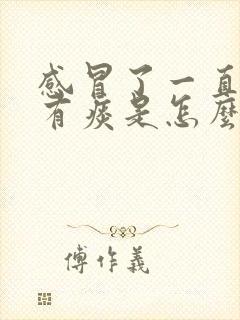 感冒了一直
有痰是怎麼
傅作義